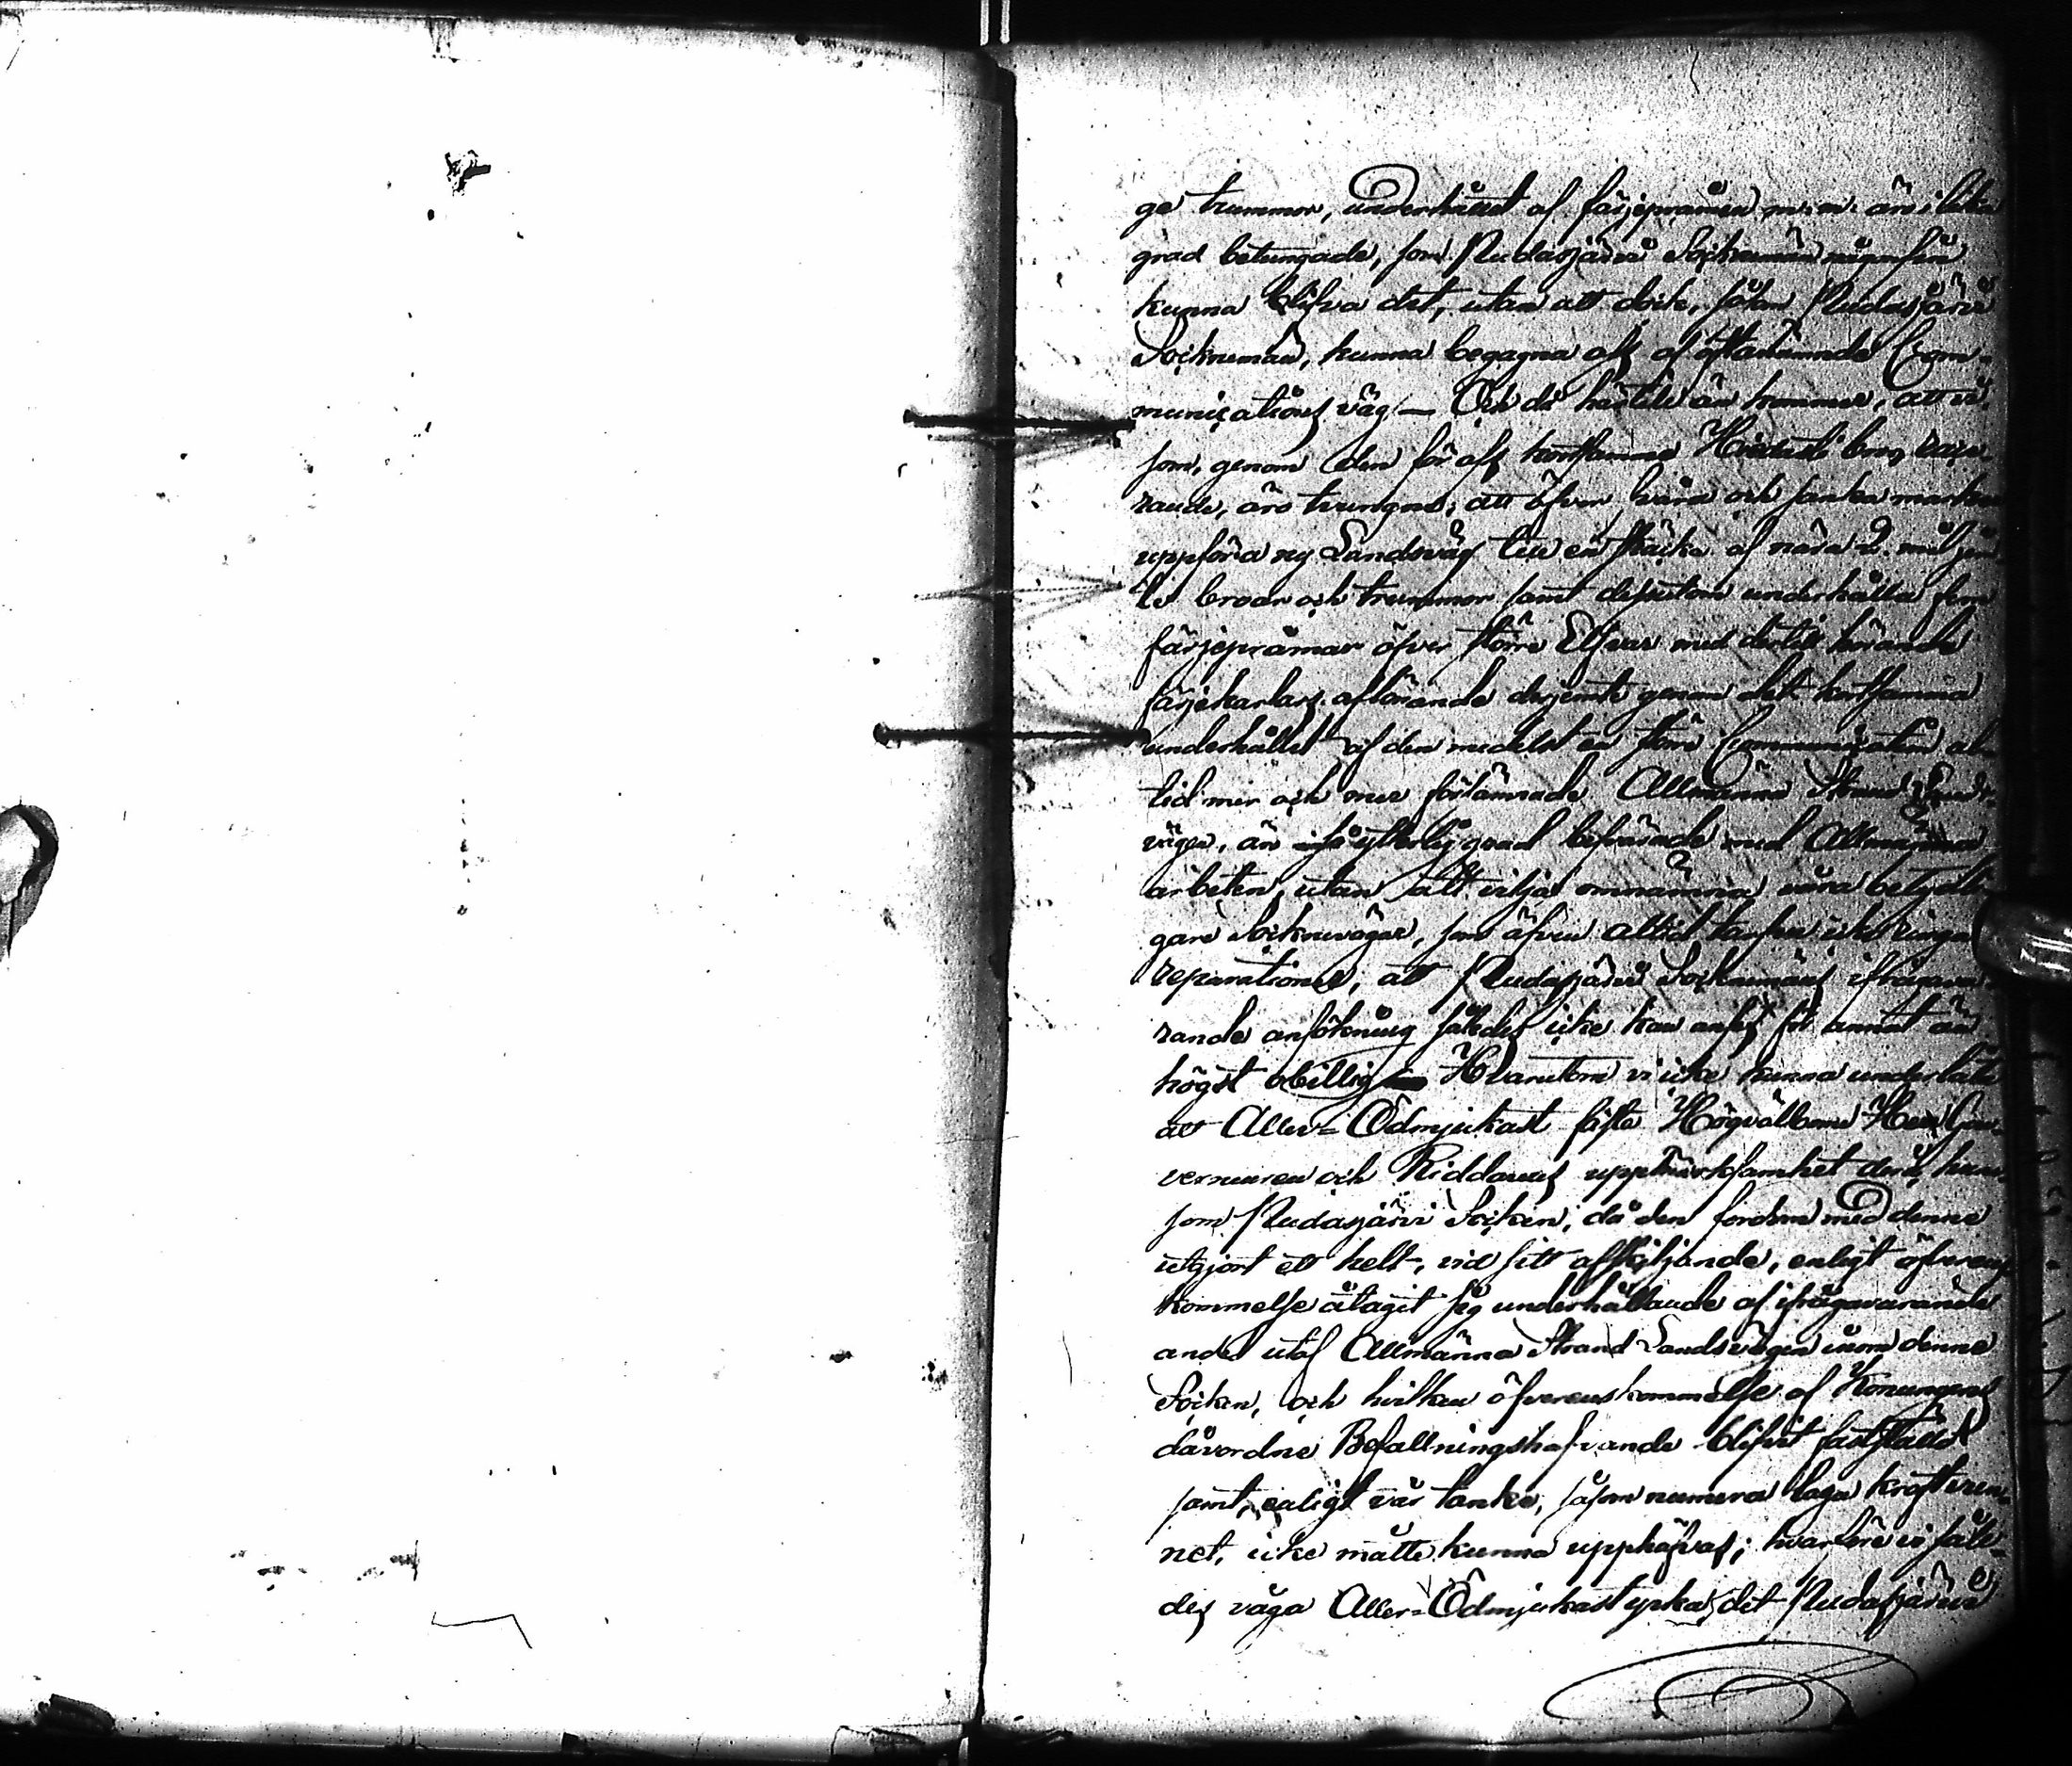 ge trummor, underhållet af färjepråmen m. m. äro i lika
grad betungade, som Pudasjärvi Sockneman någonsin
kunna blifva det, utan att dock, såsom Pudasjärvi
Sockneman, kunna begagna oss af oftanämnde Com-
munications väg — Och då härtill än kommer, att vi,
som, genom den för oss kostsamma bro,
rande, äro tvungne, att öfver svåra och sanka marker
uppföra ny Landsväg till en sträcka af nära 2 mil jem-
te broar och trummor samt dessutom underhålla fem
färjepråmar öfver större Elfvar med dertill hörande
färjekarlars aflönande derjemte genom det kostsamma
underhållet af den medelst en större Communication al-
tid mer och mer försämrade Allmänna Strand Lands-
vägen, äro i så ytterlig grad besvärade med Allmänna
arbeten, utan att vilja omnämna våra betydli-
gare Socknevägar, som äfven alltid tarfva icke ringa
reparationer, att Pudasjärvi Socknemäns ifrågava-
rande ansökning således icke kan anses för annat än
högst obillig Hvarutom vi icke kunna underlåta
att Aller-Ödmjukast fästa Högvälborne Herr Gou-
verneuren och Riddarens uppmärksamhet derå, huru-
som Pudasjärvi Socken, då den fordom med denne
utgjort ett helt, vid sitt afskiljande, enligt öfverens-
kommelse åtagit sig underhållande af ifrågavarande
andel utaf Allmänna Strand Landsvägen inom denne
Socken, och hvilken öfverenskommelse af Konungens
dåvordne Befallningshafvande blifvit fastställd
samt, enligt vår tanke, såsom numera laga kraft vun-
net, icke måtte kunna upphäfvas; hvarföre vi såle-
des våga Aller-Ödmjukast yrka, det Pudasjärvi